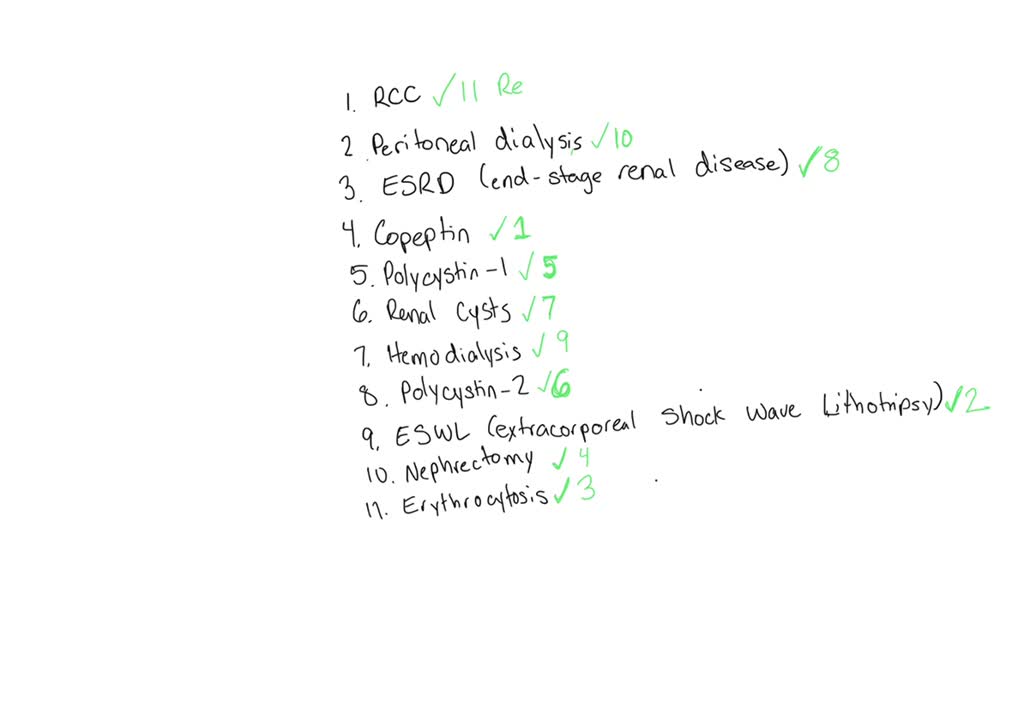 1. RCC ✓ 11 Re
2. Peritoneal dialysis ✓ 10
3. ESRD (end-stage renal disease) ✓ 8
4. Copeptin ✓ 1
5. Polycystin-1 ✓ 5
6. Renal Cysts ✓ 7
7. Hemodialysis ✓ 9
8. Polycystin-2 ✓ 6
9. ESWL (extracorporeal Shock Wave Lithotripsy) ✓ 2
10. Nephrectomy ✓ 4
11. Erythrocytosis ✓ 3